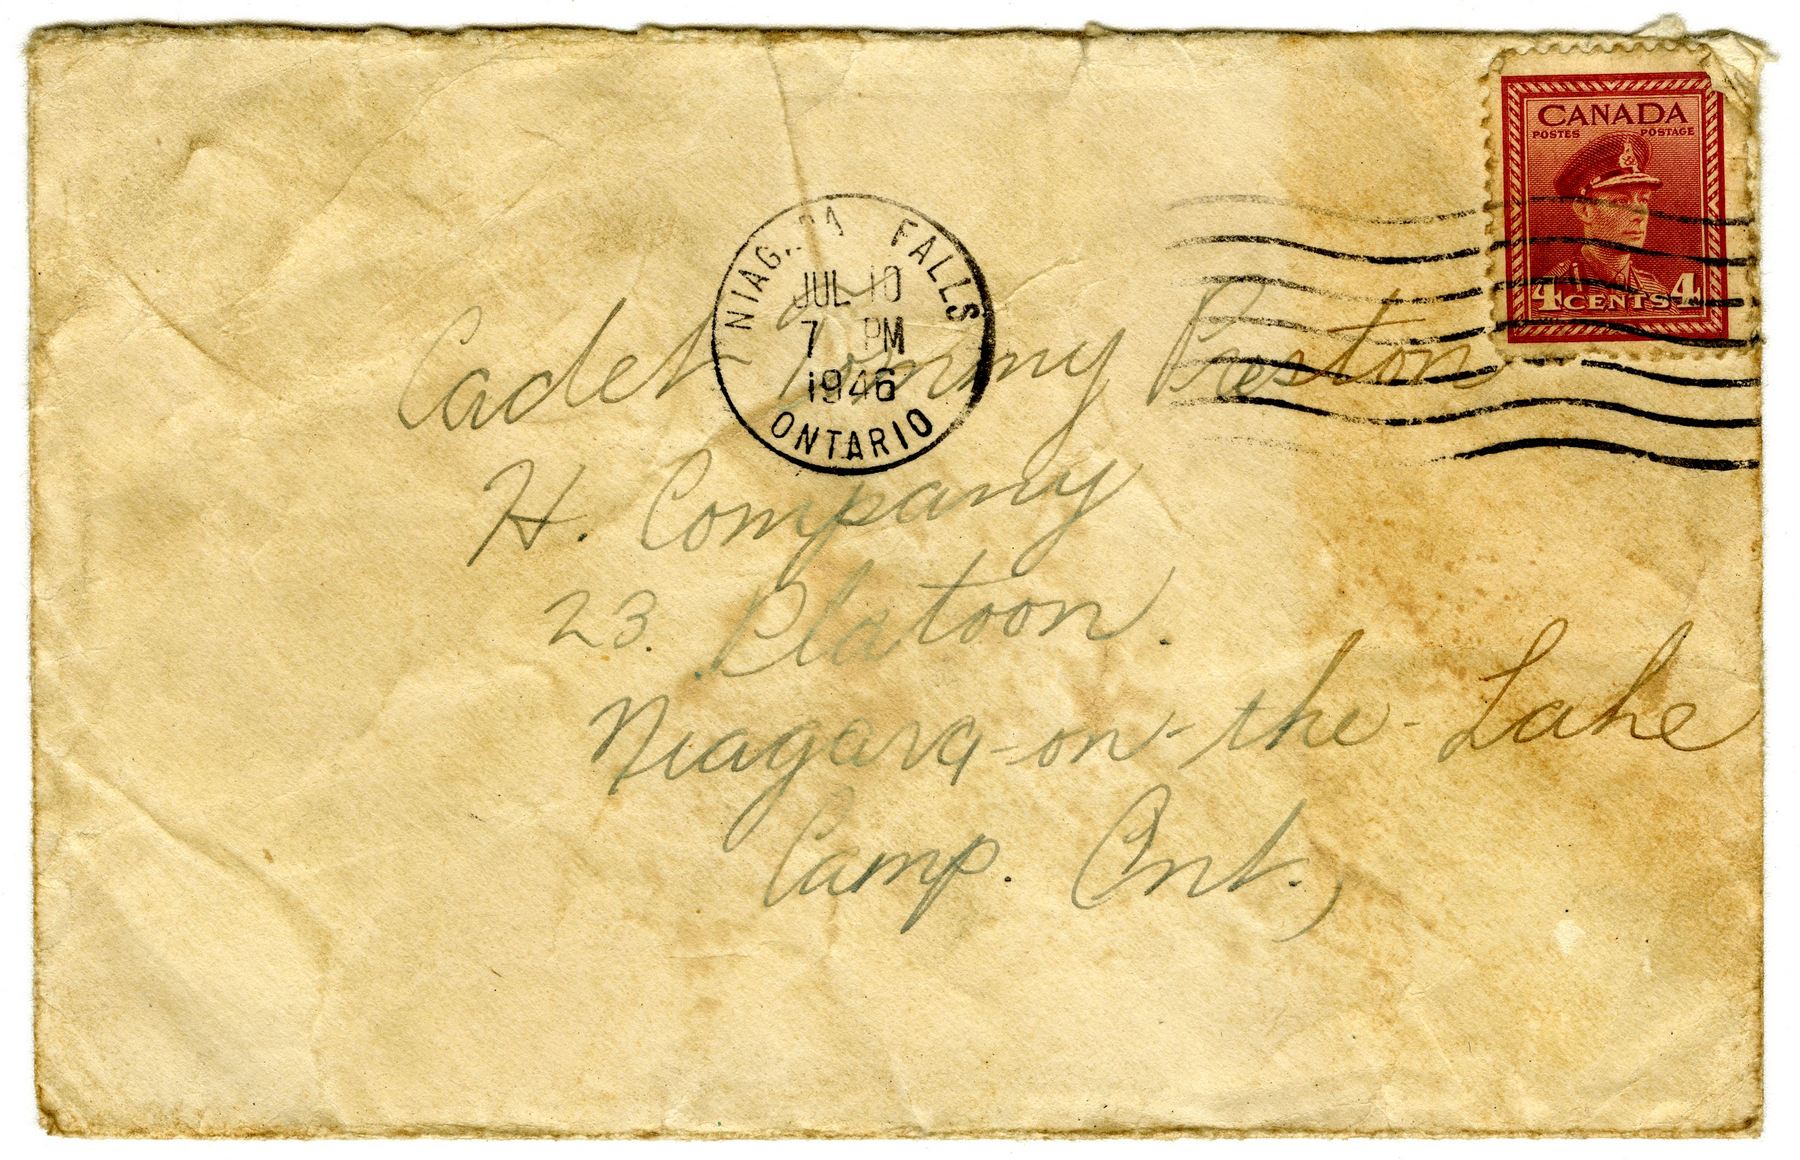 CANADA
POSTES POSTAGE
4 CENTS 4
NIAGARA FALLS
JUL 10
7 PM
1946
ONTARIO
Cadet Tommy Preston
H. Company
23. Platoon.
Niagara-on-the-Lake
Camp. Ont.,